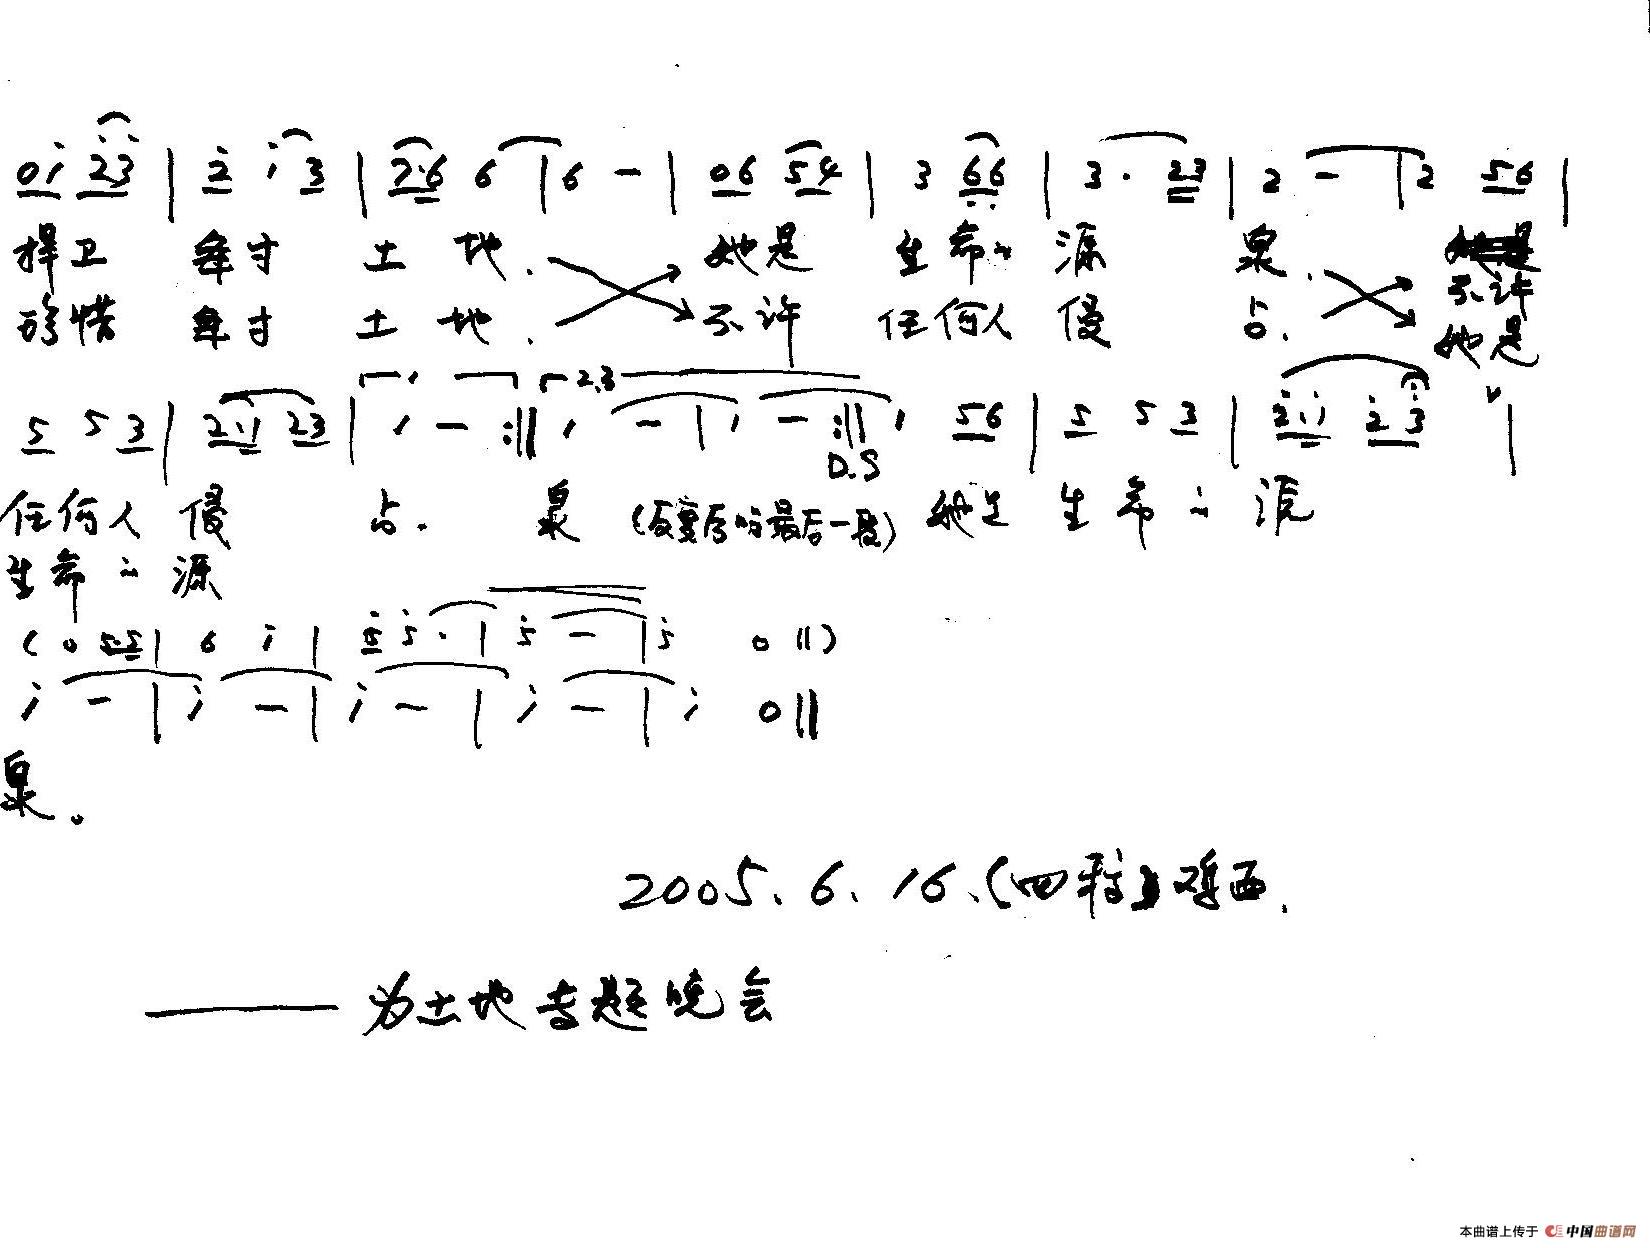 0i 23 | 2 i 3 | 2·6 6 | 6 - | 06 54 | 3 66 | 3· 23 | 2 - | 2 56 |
捍卫 每寸 土地. 她是 生命的 源 泉.
不许
珍惜 每寸 土地. 不许 任何人 侵 占. 她是
1. 2.3
5 5 3 | 2·1 23 | 1 - :‖ 1 - | 1 - :‖ 1 56 | 5 5 3 | 2·1 2 3 |
D.S
任何人 侵 占. 泉 (反复后唱最后一段) 她是 生命的源
生命的源
(0 55 | 6 i | 5 5· | 5 - | 5 0 ‖)
i - | i - | i - | i - | i 0 ‖
泉。
2005.6.16.(四稿)鸡西.
—— 为土地专题晚会
本曲谱上传于 中国曲谱网